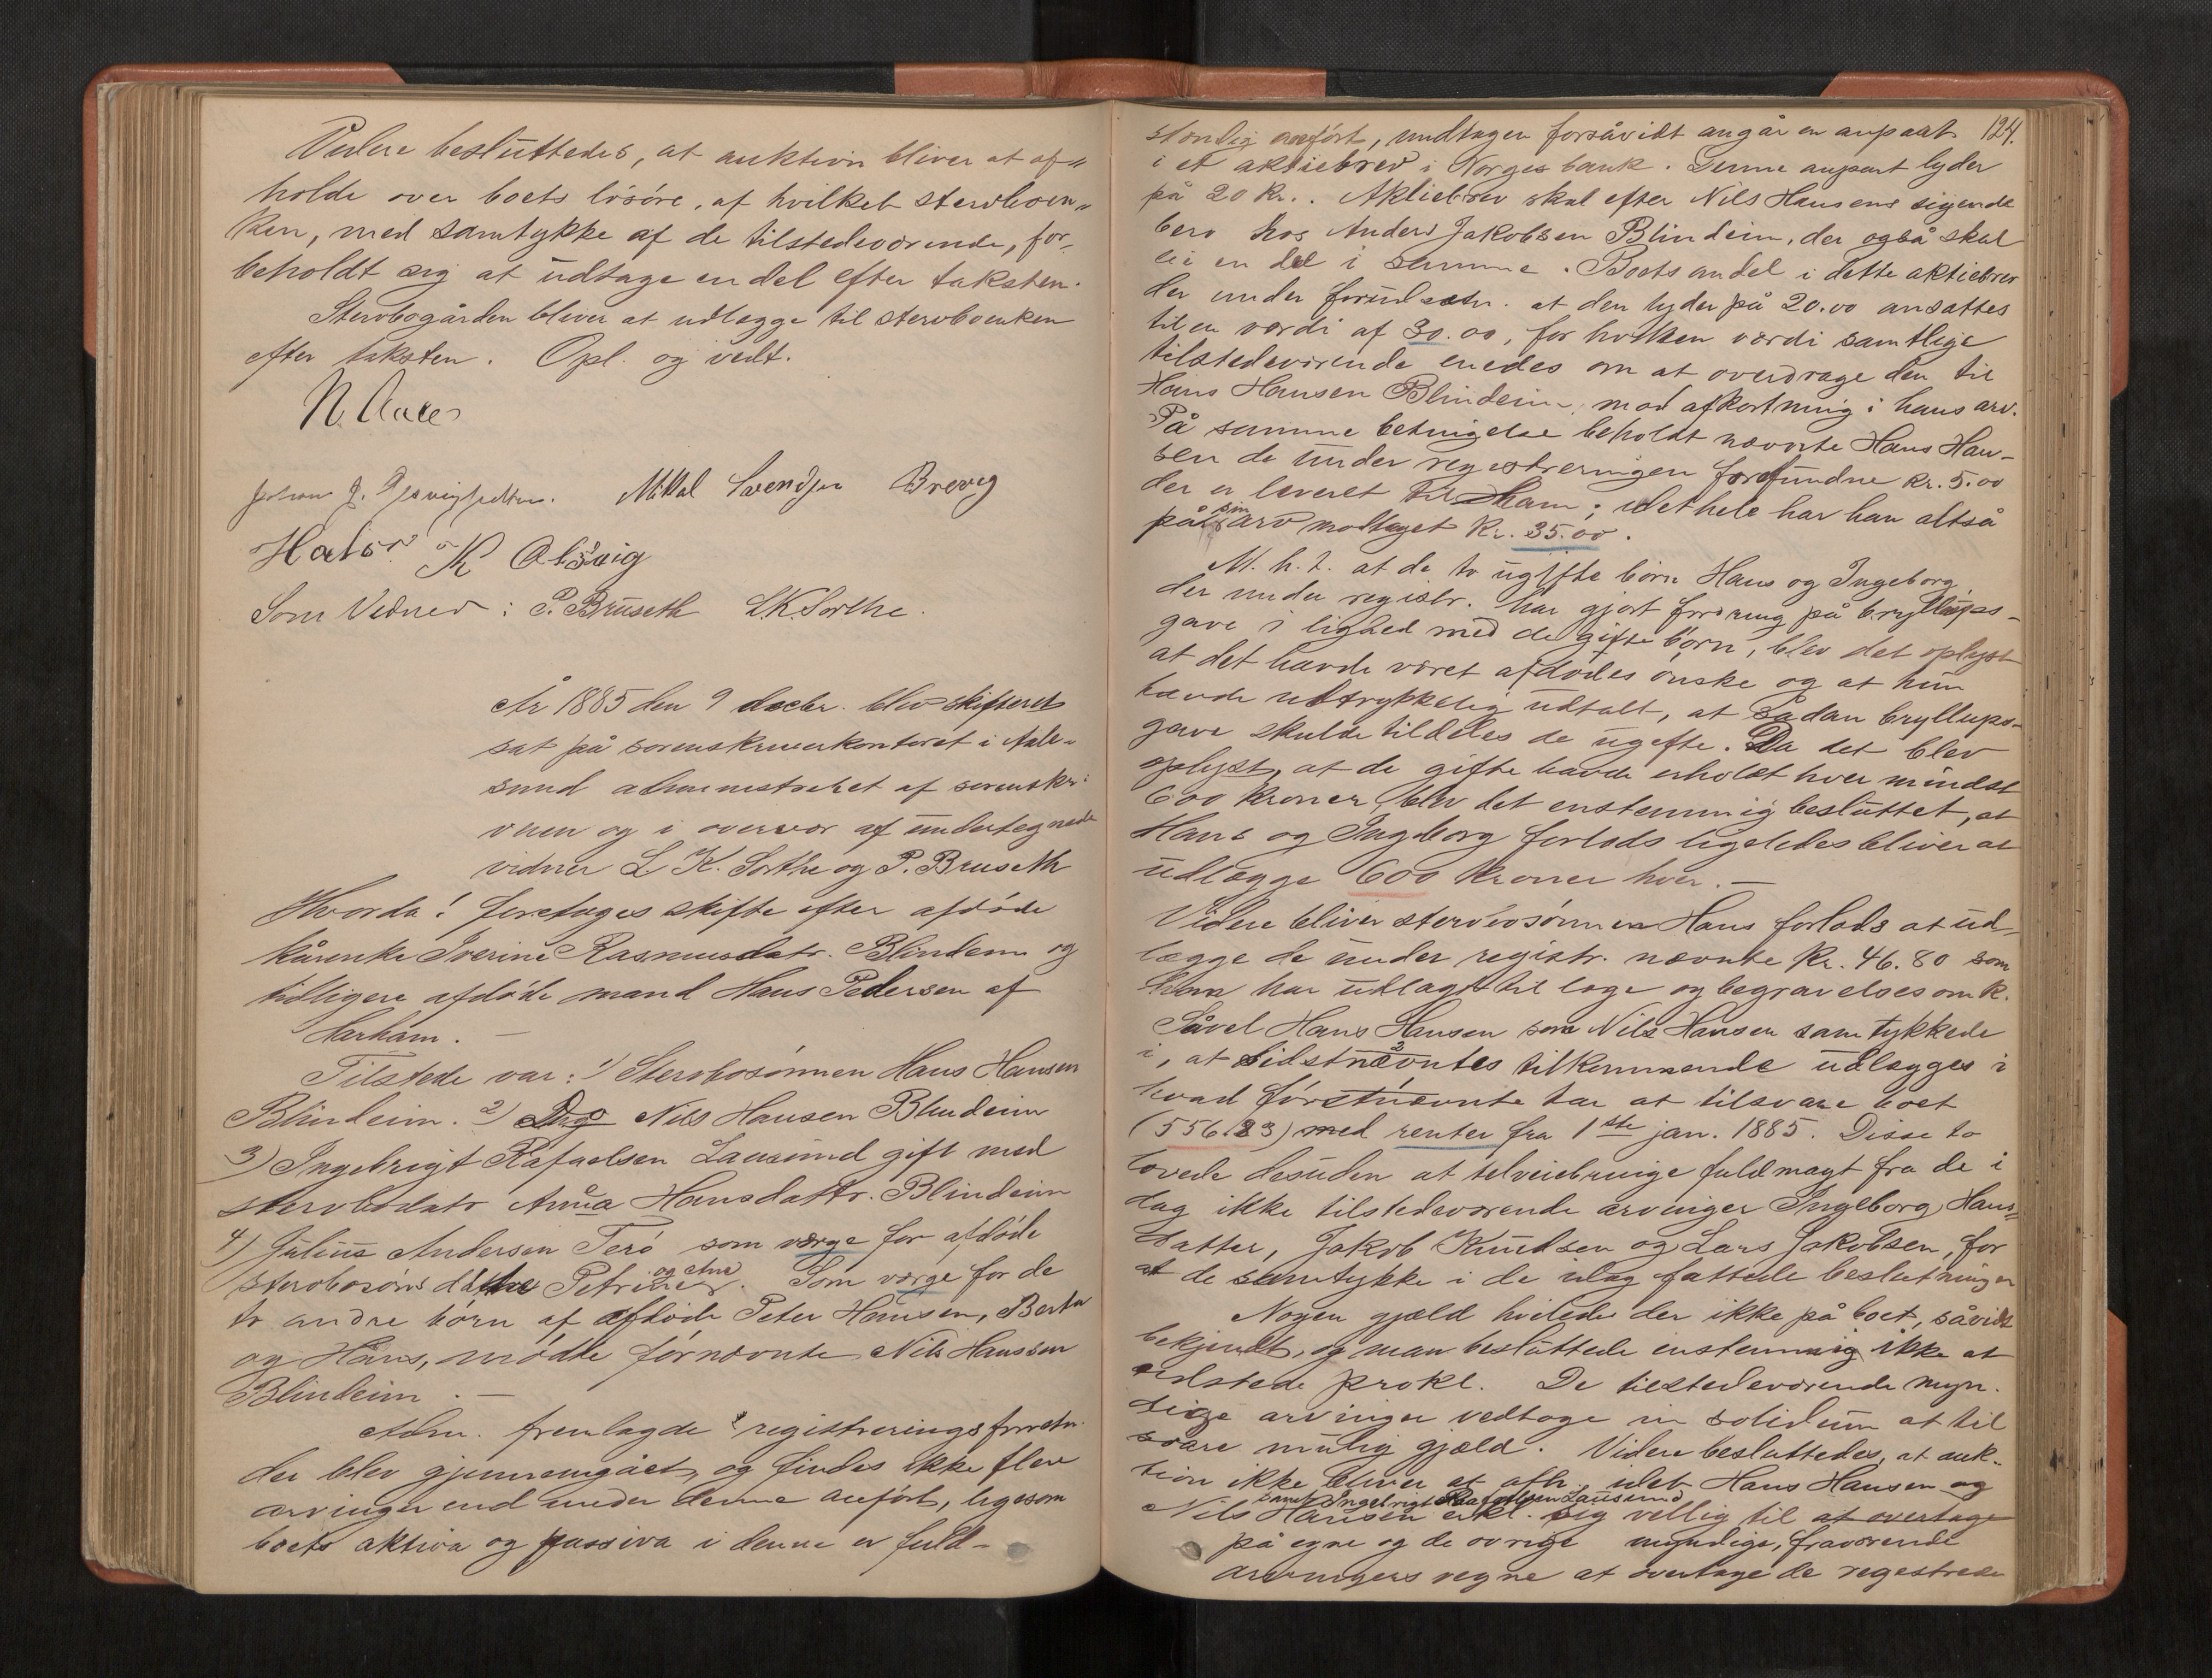 Videre besluttedes, at auktion bliver at af"
holde over boets løsøre, af hvilket stervboen"
ken, med samtykke af de tilstedeværende, for-
beholdt sig at udtage en del efter taksten.
Stervbogården bliver at udlægge til stervboenken
efter taksten. Opl. og vedt.
N. Aars
Mikal Svendsen Brevig
K Alsvig
Som Vidner: P. Bruseth L.K. Sorthe.
År 1885 den 9 decbr. blev skifteret
sat på sorenskriverkontoret i Aale-
sund administreret af sorenskri-
veren og i overvær af undertegnede
vidner L K. Sorthe og P. Bruseth
Hvorda! foretages skifte efter afdøde
kårenke Iverine Rasmusdatr. Blindeim og
tidligere afdøde mand Hans Pedersen af
Harham. —
Tilstede var: 1) Stervbosønnen Hans Hansen
Blindeim. 2) Do Nils Hansen Blindeim
3) Ingebrigt Rafaelsen Lausund gift med
stervbodatr Anna Hansdattr. Blindeim
4) Julius Andersen Terø som værge for afdøde
stervbosøns døttre Petrine og Ane. Som værge for de
to andre børn af afdøde Peter Hansen, Berta
og Hans, mødte førnævnte Nils Hanssen
Blindeim. —
Adm. fremlagde registreringsforretn.
der blev gjennemgået, og findes ikke flere
arvinger end under denne anført, ligesom
boets aktiva og passiva i denne er fuld-
124.
stændig anført, undtagen forsåvidt angår en anpart
i et aktiebrev i Norges bank. Denne anpart lyder
på 20 kr.. Aktiebrev skal efter Nils Hansens sigende
bero hos Anders Jakobsen Blindeim, der også skal
eie en del i samme. Boets andel i dette aktiebrev
der under forudsætn. at den lyder på 20.00 ansattes
til en værdi af 30.00, for hvilken værdi samtlige
tilstedeværende enedes om at overdrage den til
Hans Hansen Blindeim, mod afkortning i hans arv.
På samme betingelse beholdt nævnte Hans Han-
sen de under registreringen forefundne kr. 5.00
der er leveret til ham; idethele har han altså
på sin arv modtaget kr. 35.00.
M. h. t. at de to ugifte børn Hans og Ingeborg
der under registr. har gjort fordring på bryllups-
gave i lighed med de gifte børn, blev det oplyst
at det havde været afdødes ønske og at hun
havde udtrykkelig udtalt, at sådan bryllups-
gave skulde tildeles de ugifte. Da det blev
oplyst, at de gifte havde erholdt hver mindst
600 kroner, blev det enstemmig besluttet, at
Hans og Ingeborg forlods ligeledes bliver at
udlægge 600 kroner hver. —
Videre bliver stervbosønnen Hans forlods at ud-
lægge de under registr. nævnte kr. 46.80 som
han har udlagt til læge og begravelsesomk.
Såvel Hans Hansen som Nils Hansen samtykkede
i, at sidstnævntes tilkommende udlægges i
hvad førstnævnte har at tilsvare boet
(556.83) med renter fra 1ste jan. 1885. Disse to
lovede desuden at tilveiebringe fuldmagt fra de i
dag ikke tilstedeværende arvinger Ingeborg Hans-
datter, Jakob Knudsen og Lars Jakobsen, for
at de samtykke i de idag fattede beslutninger
Nogen gjæld hvilede der ikke på boet, såvidt
bekjendt, og man besluttede enstemmig ikke at
udstede prokl. De tilstedeværende myn-
dige arvinger vedtoge in solidum at til
svare mulig gjæld. Videre besluttedes, at auk-
tion ikke bliver at afh., idet Hans Hansen og
samt Ingebrigt Rafaelsen Lausund
Nils Hansen erkl. sig villig til at overtage
på egne og de øvrige myndige, fraværende
arvingers vegne at overtage de registrede